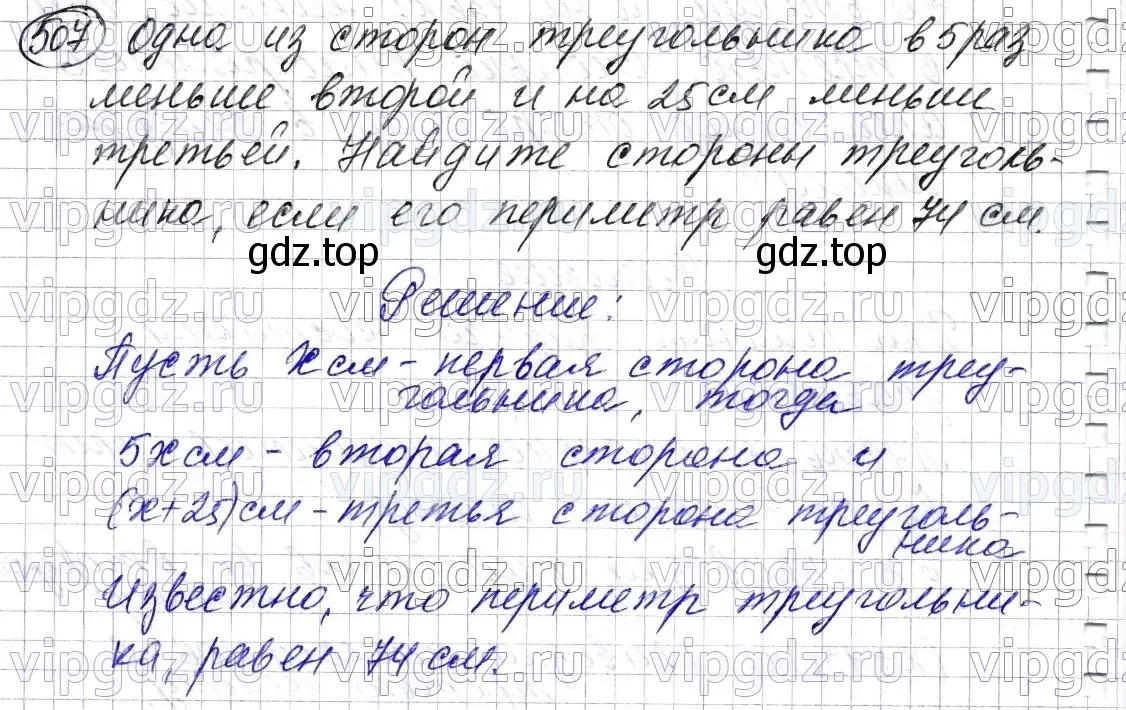 507 Одна из сторон треугольника в 5 раз
меньше второй и на 25 см меньше
третьей. Найдите стороны треуголь-
ника, если его периметр равен 74 см.
gdz.top gdz.top
Решение:
Пусть х см - первая сторона треу-
гольника, тогда
5х см - вторая сторона и
(х+25) см - третья сторона треуголь-
ника
Известно, что периметр треугольни-
ка, равен 74 см.